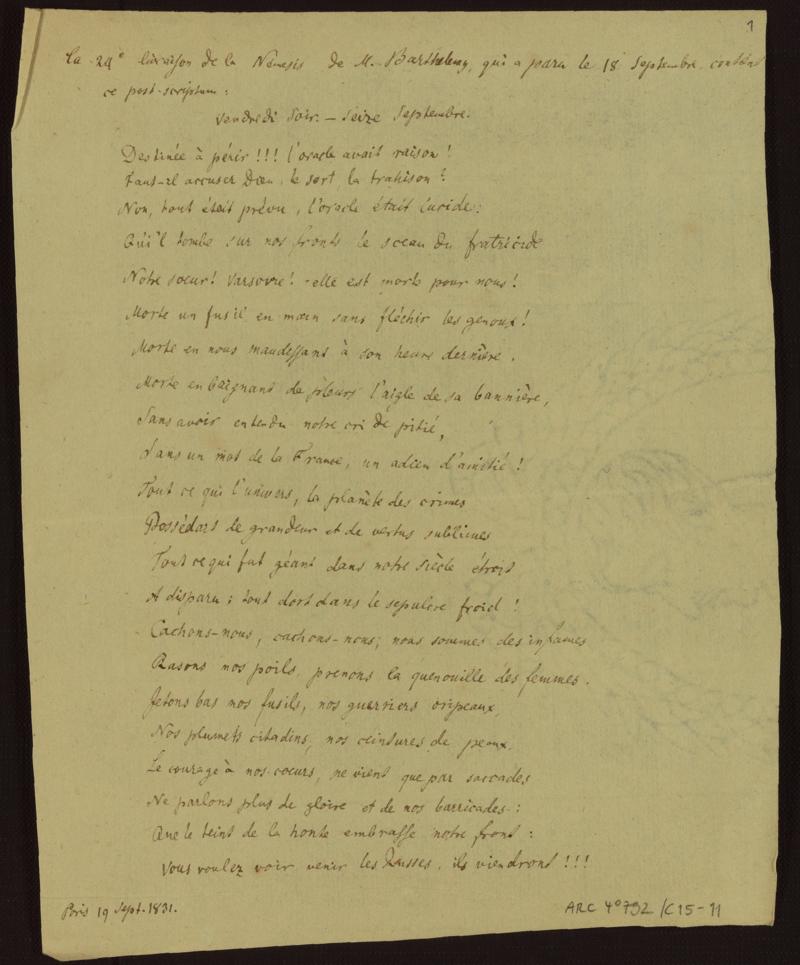 1
La 24e livraison de la Némesis de M. Barthelemy, qui a paru le 18 Septembre contient
ce post-scriptum:
Vendredi Soir. — Seize Septembre.
Destinée à périr!!! l'oracle avait raison!
Faut-il accuser Dieu, le sort, la trahison?
Non, tout était prévu, l'oracle était lucide:
Qu'il tombe sur nos fronts le sceau du fratricide
Notre soeur! Varsovie! elle est morte pour nous!
Morte un fusil en main sans fléchir les genoux!
Morte en nous maudissant à son heure dernière.
Morte en baignant de pleurs l'aigle de sa bannière,
Sans avoir entendu notre cri de pitié,
Sans un mot de la France, un adieu d'amitié!
Tout ce qui l'univers, la planète des crimes
Possédait de grandeur et de vertus sublimes
Tout ce qui fut géant dans notre siècle étroit
A disparu: tout dort dans le sepulcre froid!
Cachons-nous, cachons-nous; nous sommes des infames
Rasons nos poils, prenons la quenouille des femmes.
Jetons bas nos fusils, nos guerriers oripeaux,
Nos plumets citadins, nos ceintures de peaux,
Le courage à nos coeurs, ne vient que par saccades
Ne parlons plus de gloire et de nos barricades:
Que le teint de la honte embrasse notre front:
Vous voulez voir venir les Russes, ils viendront!!!
Paris 19 Sept. 1831.
ARC 4°792/C15-11